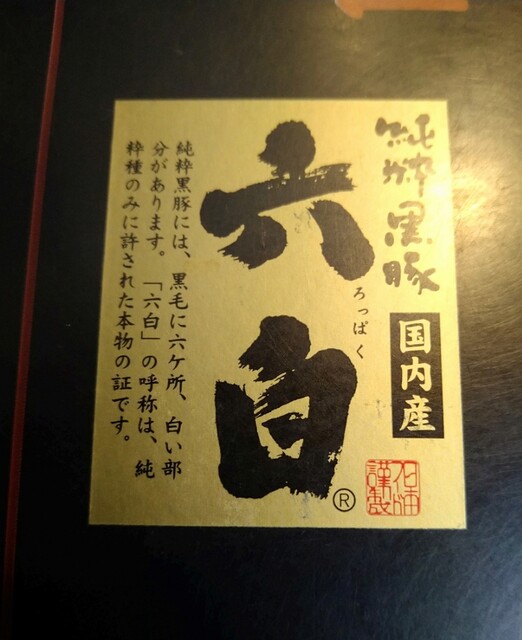 純粋黒豚
国内産
六白
ろっぱく
®
純粋黒豚には、黒毛に六ケ所、白い部
分があります。「六白」の呼称は、純
粋種のみに許された本物の証です。
謹製